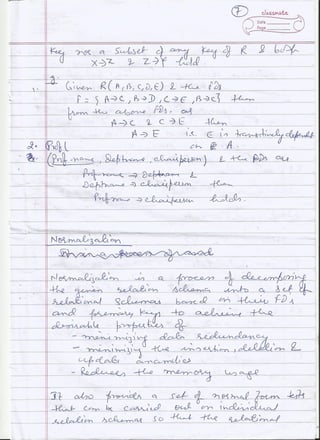 7
classmate
Date
Page
Key nor a subset of any key of R & both
X→Z & Z→Y hold
Given R(A,B,C,D,E) & the FDs
F = { A→C, B→D, C→E, B→C} then
from the above FDs. as
A→C & C→E then
A→E i.e. E is transitively dependent
on A.
2.
(Prof-name, Deptname, chairperson) & the FDs are
Prof-name → Deptname &
Deptname → chairperson then
Prof name → chairperson holds.
Normalization
Normalization is a process of decomposing
the given relation schema into a set of
relational schemas based on their FDs
and primary keys to achieve the
desirable properties of
- minimizing data redundancy
- minimizing the insertion, deletion &
update anomalies
- Reduces the memory usage
It also provides a set of normal form tests
that can be carried out on individual
relation schemas so that the relational